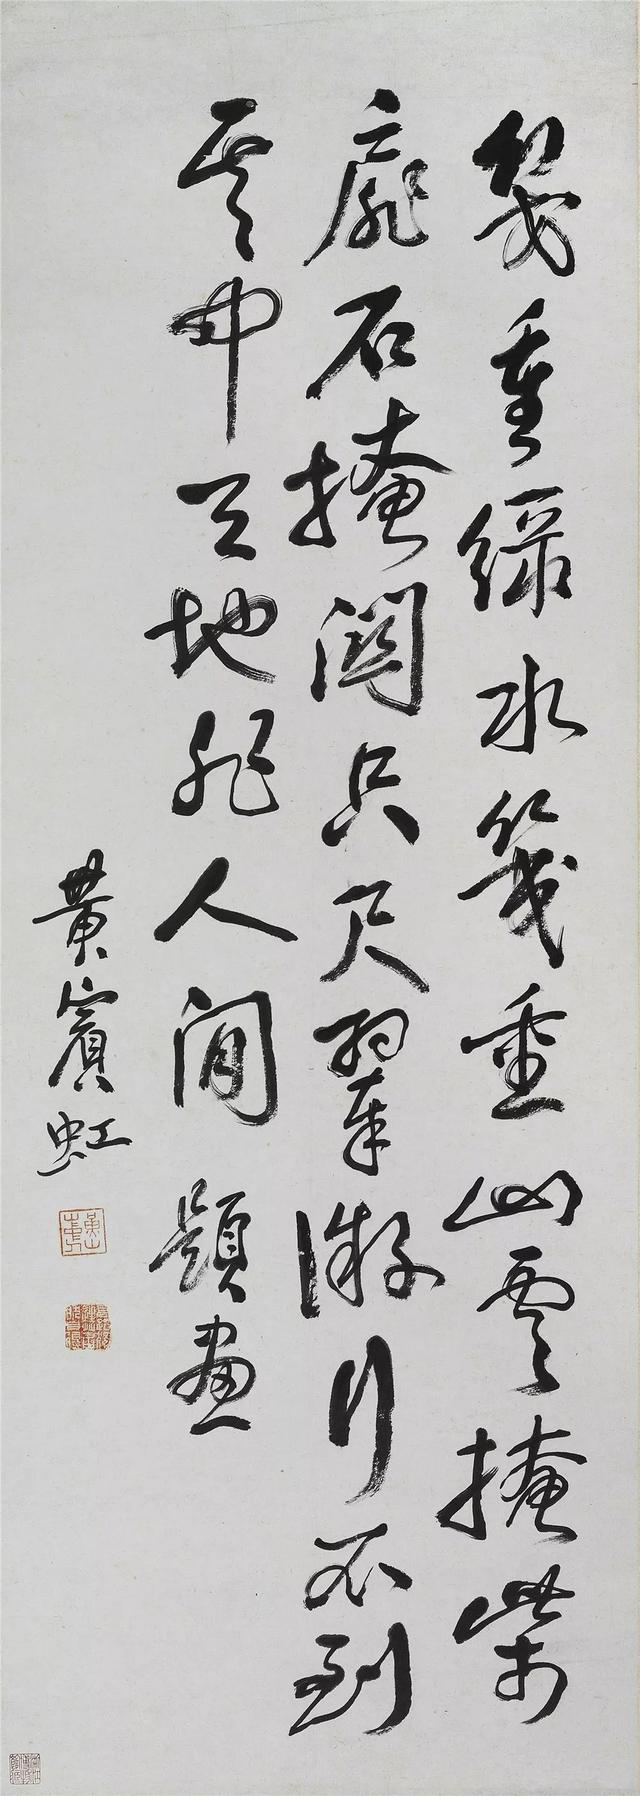 幾重綠水幾重山雲掩柴
扉石掩關只尺翠微行不到
其中天地非人間 題畫
黃賓虹